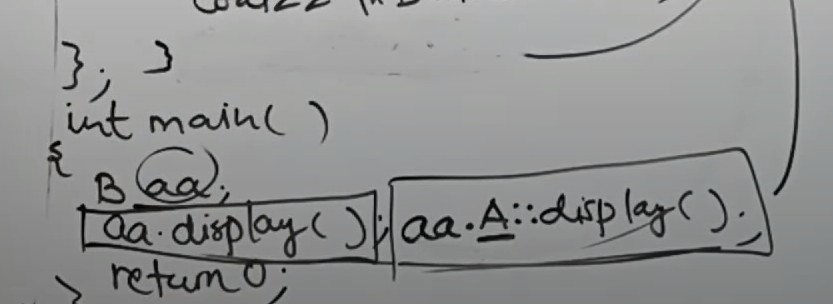 }; }
int main( )
{
B aa;
aa.display( ); aa.A::display( );
return 0;
}